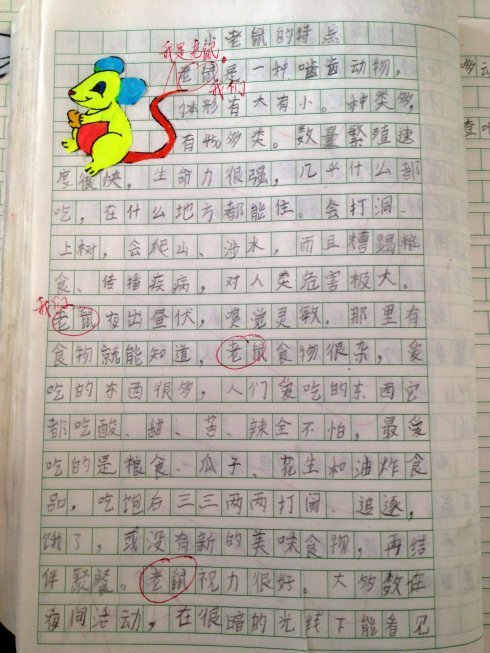 老鼠的特点
我是老鼠，
老鼠是一种啮齿动物，
我们
体形有大有小。种类多，
有450多类。数量繁殖速
度很快，生命力很强，几乎什么都
吃，在什么地方都能住。会打洞、
上树，会爬山、涉水，而且糟蹋粮
食、传播疾病，对人类危害极大。
我们
老鼠夜出昼伏，嗅觉灵敏。那里有
食物就能知道，老鼠食物很杂，爱
吃的东西很多，人们爱吃的东西它
都吃酸、甜、苦、辣全不怕，最爱
吃的是粮食、瓜子、花生和油炸食
品，吃饱后三三两两打闹、追逐，
饿了，或没有新的美味食物，再结
伴聚餐。老鼠视力很好。大多数在
夜间活动，在很暗的光线下能看见